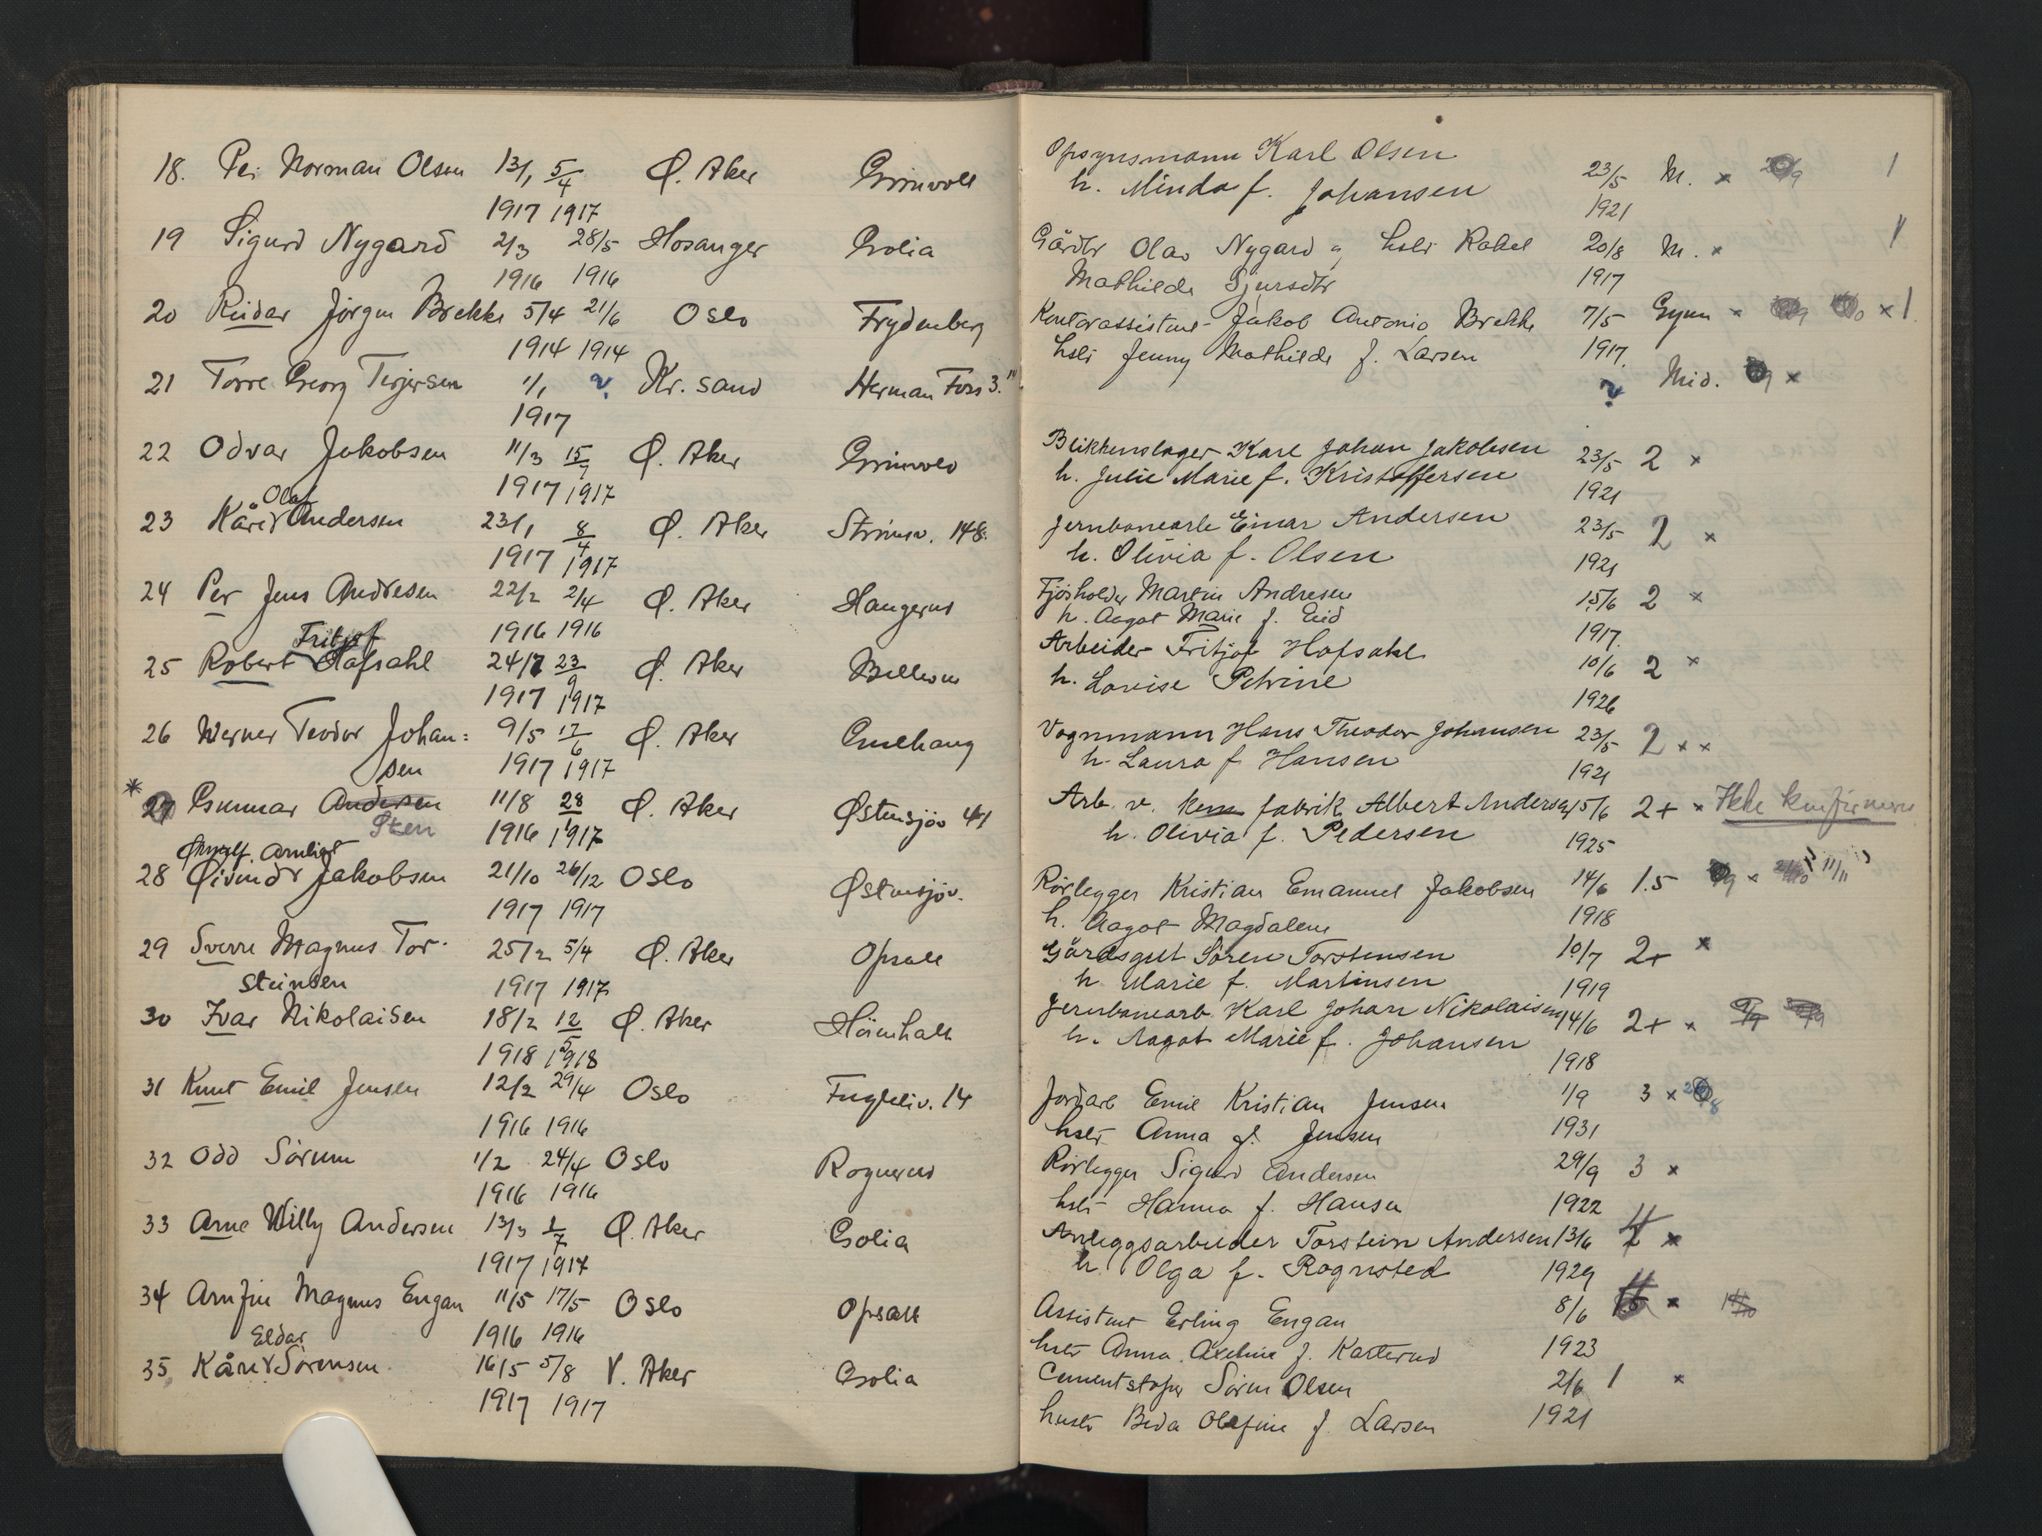 18. Per Norman Olsen 13/1 5/4 Ø. Aker Grinvoll
1917 1917
19 Sigurd Nygard 2/3 28/5 Hosanger Golia
1916 1916
20 Reidar Jörgen Brekke 5/4 21/6 Oslo Frydenberg
1914 1914
21 Torre Georg Terjesen 1/1 ? Kr. sand Herman Foss 3.
1917
22 Odvar Jakobsen 11/3 15/7 Ø. Aker Grinvold
1917 1917
Olaf
23 Kåre Andersen 23/1 8/4 Ø. Aker Strömsv. 148.
1917 1917
24 Per Jens Andresen 22/2 2/4 Ø. Aker Haugerud
1916 1916
Fritjof
25 Robert Hofsahl 24/7 23/9 Ø. Aker
1917 1917
26 Werner Teodor Johan= 9/5 17/6 Ø. Aker
sen 1917 1917
* 27 Gunnar Andersen 11/8 28/1 Ø. Aker Østensjöv 41
Sten 1916 1917
28 Øivind Jakobsen 21/10 26/12 Oslo Østensjöv.
1917 1917
29 Sverre Magnus Tor- 25/2 5/4 Ø. Aker Opsall
steinsen 1917 1917
30 Ivar Nikolaisen 18/2 12/5 Ø. Aker
1918 1918
31 Knut Emil Jensen 12/2 29/4 Oslo Fugleliv. 14
1916 1916
32 Odd Sörum 1/2 24/4 Oslo Rognerud
1916 1916
33 Arne Willy Andersen 13/3 1/7 Ø. Aker Golia
1917 1917
34 Arnfin Magnus Engan 11/5 17/5 Oslo Opsall
1916 1916
Eldar
35 Kåre Sörensen 16/5 5/8 V. Aker Golia
1917 1917
Opsynsmann Karl Olsen
h. Minda f. Johansen 23/5 M. x 1
1921
Gårdbr Olav Nygard og hstr Rakel 20/8 M. x
Mathilde Sjursdtr 1917
Kontorassistent Jakob Antonio Brekke 7/5 Gymn x x 1
hstr Jenny Mathilde f. Larsen 1917.
? Mid. x
Blikkenslager Karl Johan Jakobsen 23/5 2 x
h. Julie Marie f. Kristoffersen 1921
Jernbanearb Einar Andersen 23/5 2 x
h. Olivia f. Olsen 1921
Fjösholder Martin Andresen 15/6 2 x
h. Aagot Marie f. Eid 1917.
Arbeider Fritjof Hofsahl 10/6 2 x
h. Lovise Petrine 1926
Vognmann Hans Theodor Johansen 23/5 2 x x
h. Laura f. Hansen 1921
Arb. v. kem fabrik Albert Andersen 15/6 2+ x Ikke konfirmeres
h. Olivia f. Pedersen 1925
Rörlegger Kristian Emanuel Jakobsen 14/6 1.5 x 11/11
h. Aagot Magdalene 1918
Gårdsgut Sören Torstensen 10/7 2+ x
h Marie f. Martinsen 1919
Jernbanearb. Karl Johan Nikolaisen 14/6 2+ x
h. Aagot Marie f. Johansen 1918
Jordarb Emil Kristian Jensen 1/9 3 x
hstr Anna f. Jensen 1931
Rörlegger Sigurd Andersen 29/9 3 x
hstr Hanna f. Hansen 1922
Anleggsarbeider Torstein Andersen 13/6 x
h. Olga f. Rognsted 1929
Assistent Erling Engan 8/6 x
hstr Anna Axeline f. Karterud 1923
Cementstöper Sören Olsen 2/6 1 x
hustr Beda Olefine f Larsen 1921